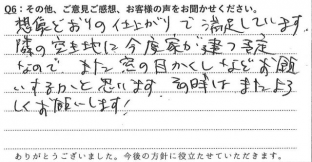 Q6：その他、ご意見ご感想、お客様の声をお聞かせください。
想像どおりの仕上がりで満足しています。
隣の空き地に今度家が建つ予定
なので、また窓の目かくしなどお願
いするかと思います。その時はまたよろ
しくお願いします！
ありがとうございました。今後の方針に役立たせていただきます。